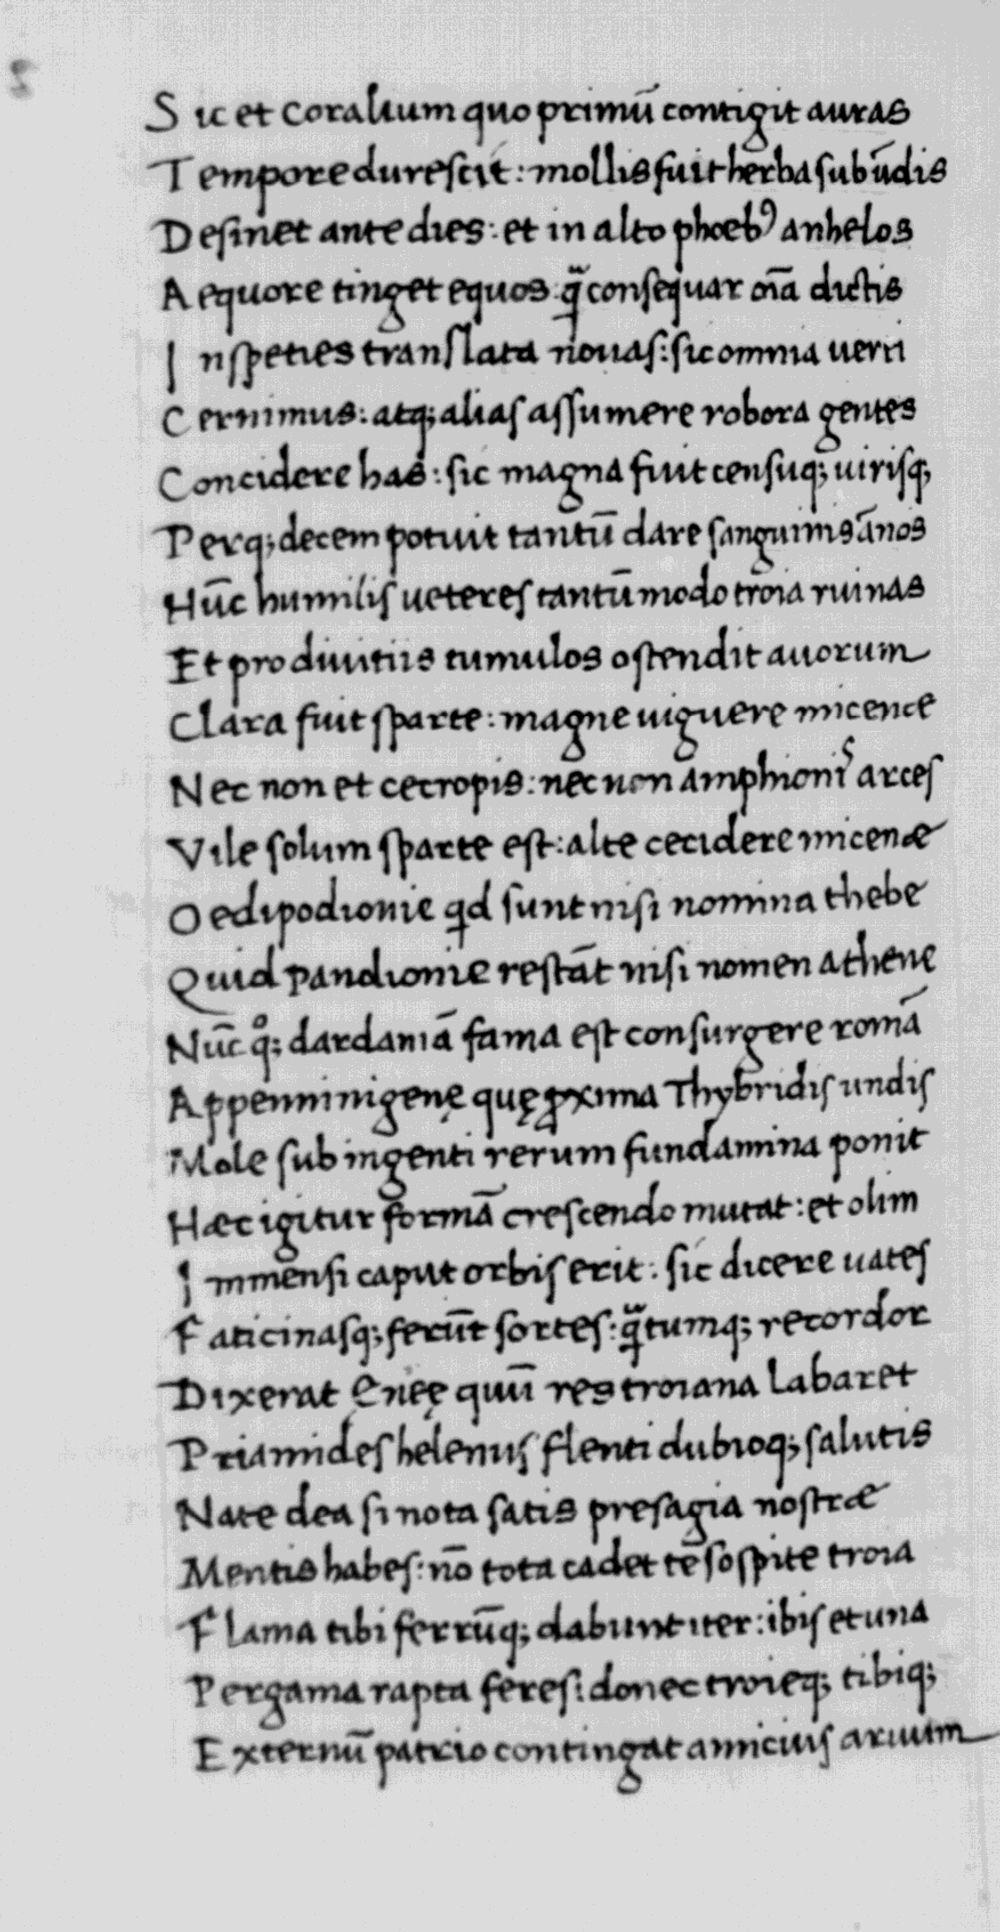 Sic et coralium quo primū contigit auras
Tempore durescit: mollis fuit herba sub ūdis
Desinet ante dies: et in alto phoebꝰ anhelos
Aequore tinget equos: q̄ consequar oīa dictis
Inspeties translata nouas: sic omnia uerti
Cernimus: atq; alias assumere robora gentes
Concidere has: sic magna fuit censuq; uirisq;
Perq; decem potuit tantū dare sanguinis ānos
Hūc humilis ueteres tantūmodo troia ruinas
Et pro diuitiis tumulos ostendit auorum
Clara fuit sparte: magne uiguere micence
Nec non et cecropis: nec non amphionis arces
Vile solum sparte est: alte cecidere micenæ
Oedipodionie qd sunt nisi nomina thebe
Quid pandionie restāt nisi nomen athene
Nūc qͦ; dardaniā fama est consurgere romā
Appenninigenę quę ꝓxima Thybridis undis
Mole sub ingenti rerum fundamina ponit
Hæc igitur formā crescendo mutat: et olim
Immensi caput orbis erit: sic dicere uates
Faticinasq; ferūt sortes: q̄tumq; recordor
Dixerat Ęnęę quū res troiana labaret
Priamides helenus flenti dubioq; salutis
Nate dea si nota satis presagia nostræ
Mentis habes: nō tota cadet te sospite troia
Flama tibi ferrūq; dabunt iter: ibis et una
Pergama rapta feres: donec troieq; tibiq;
Externū patrio contingat amicius aruum